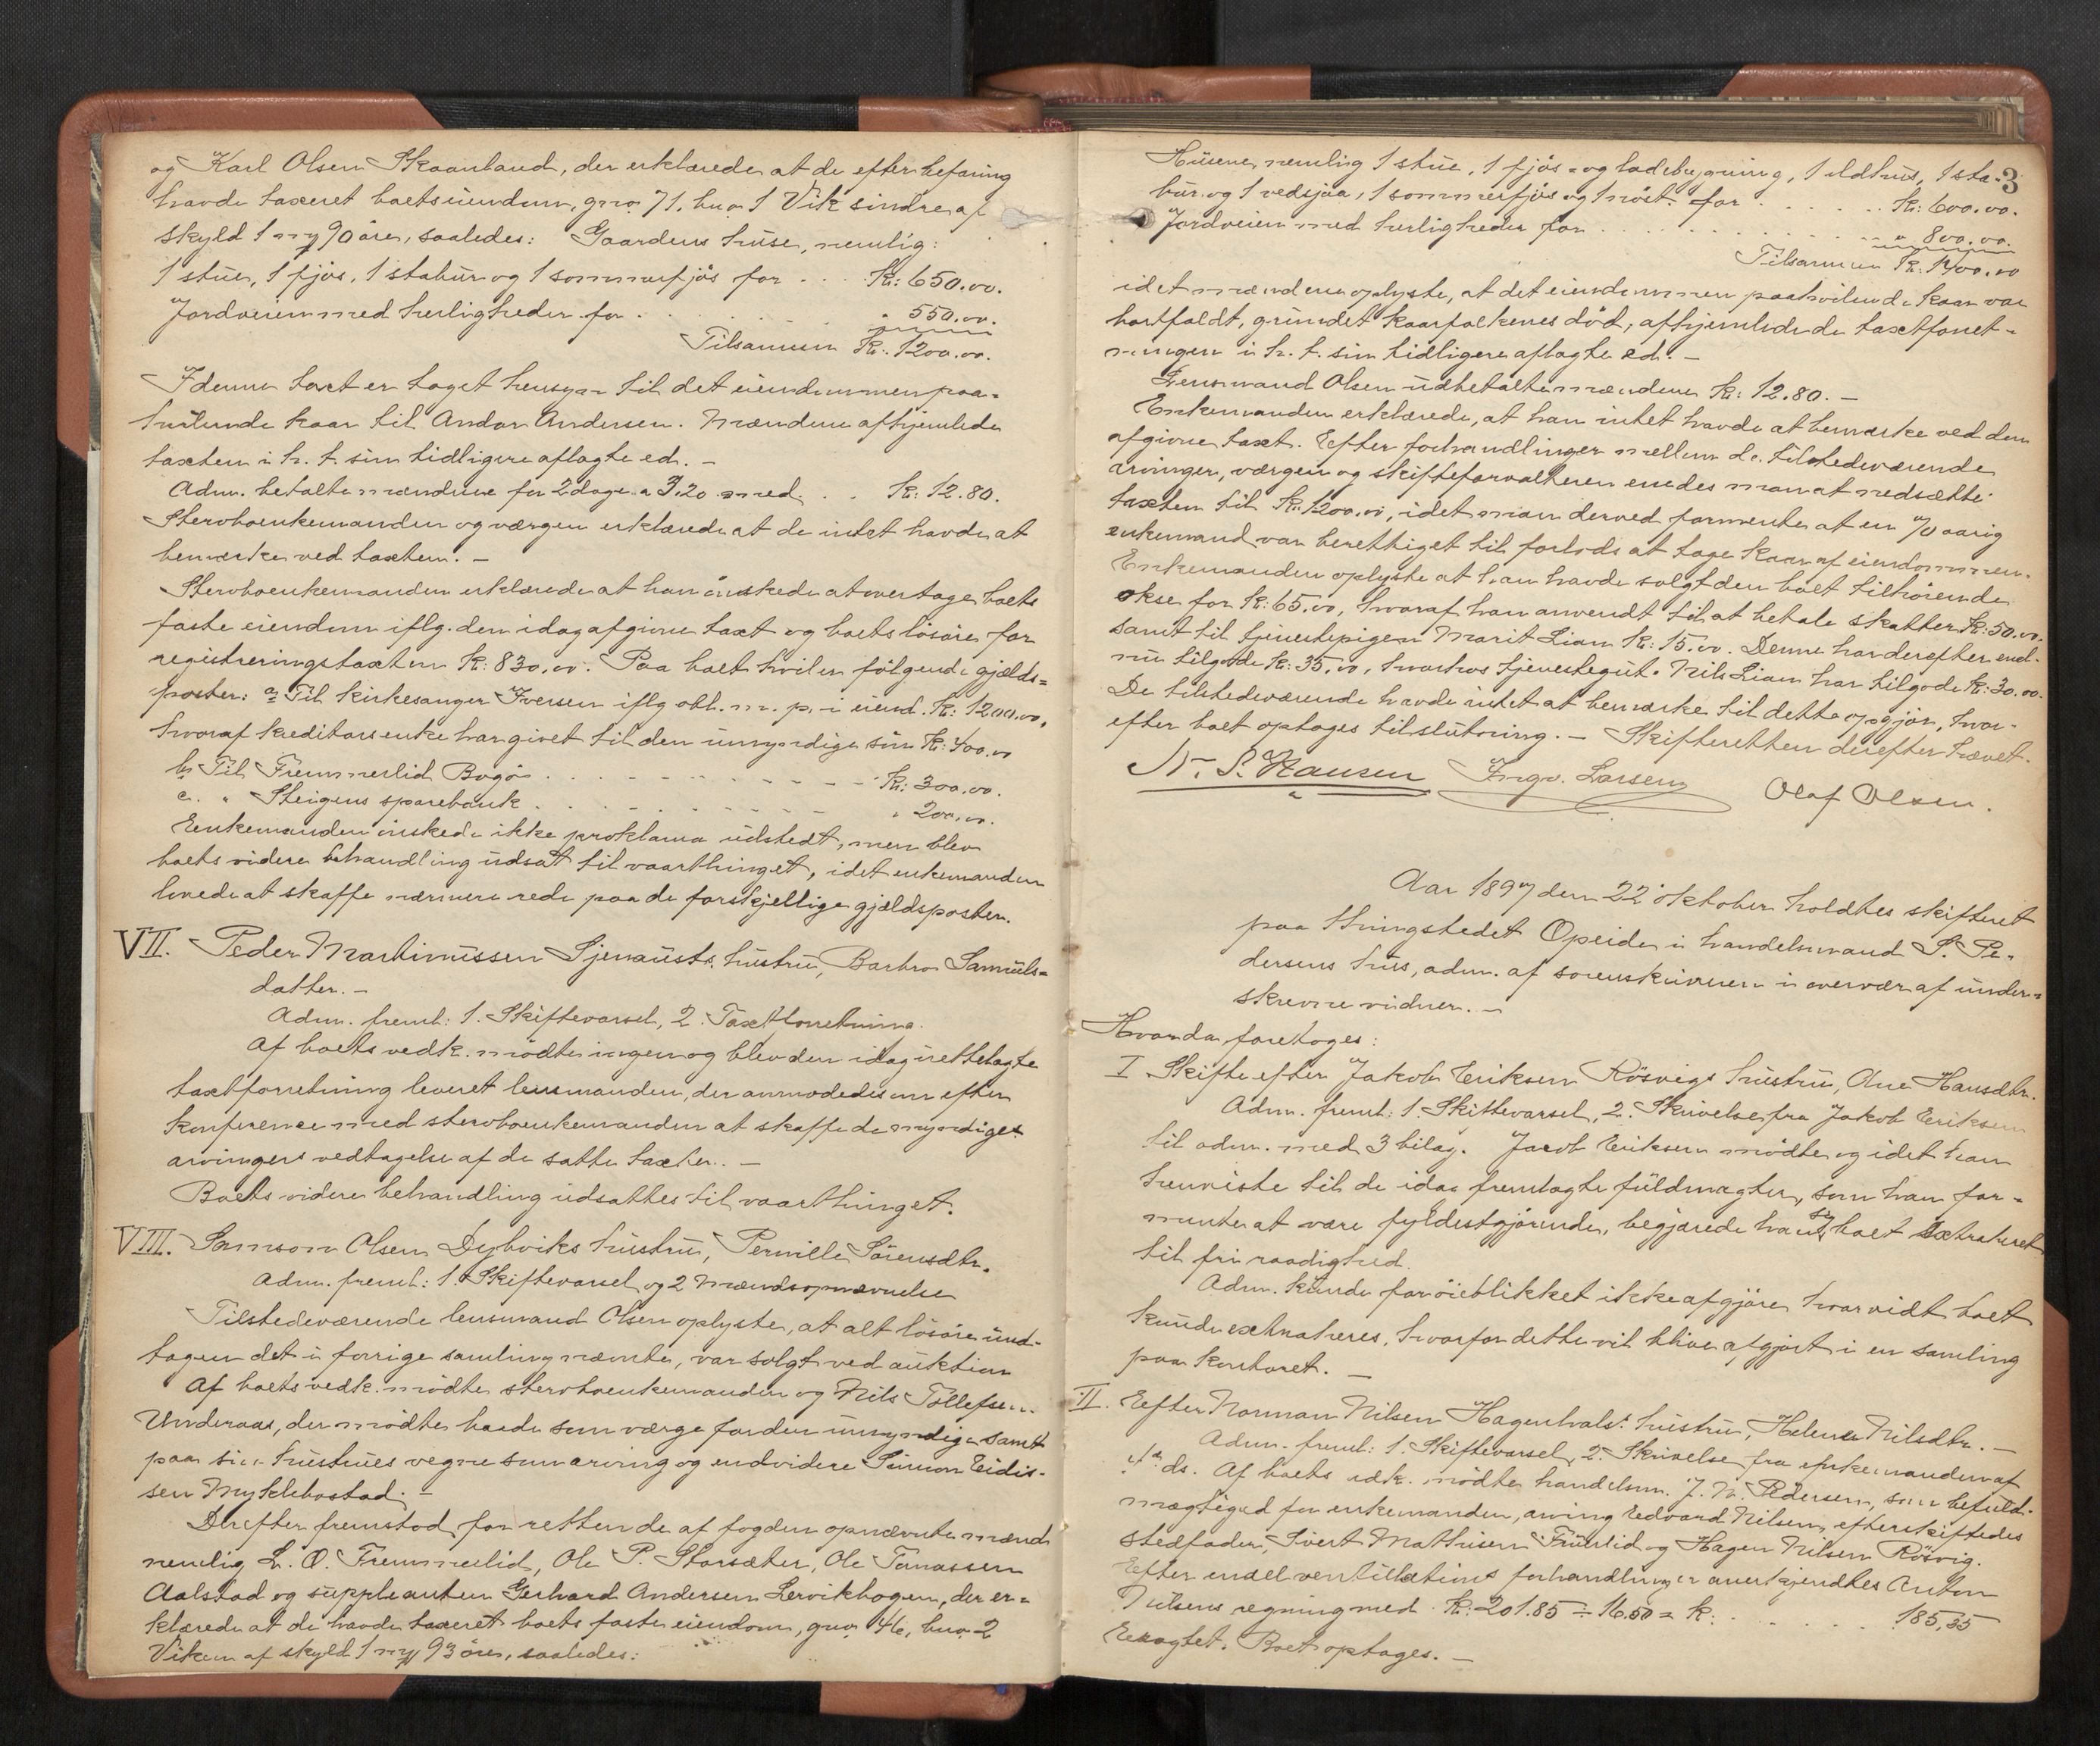 og Karl Olsen Skaanland, der erklærede at de efter befaring
havde taxeret boets eiendom, gno. 71, bno. 1 Vik søndre af
skyld 1 my 90 øre, saaledes: Gaardens huse, nemlig:
1 stue, 1 fjøs, 1 stabur og 1 sommerfjøs for . . . Kr: 650.00.
Jordveien med herligheder for . . . . . . " 550.00.
Tilsammen Kr: 1200.00.
I denne taxt er taget hensyn til det eiendommen paa-
hvilende kaar til Andor Andersen. Mændene afhjemlede
taxten i h. t. sin tidligere aflagte ed. —
Adm. betalte mændene for 2 dage a 3.20 med . . Kr: 12.80.
Stervboenkemanden og værgen erklærede at de intet havde at
bemærke ved taxten. —
Stervboenkemanden erklærede at han ønskede at overtage boets
faste eiendom iflg. den idag afgivne taxt og boets løsøre for
registreringstaxten Kr: 830,00. Paa boet hviler følgende gjælds-
poster: a Til kirkesanger Iversen iflg obl. m. p. i eiend. Kr: 1200.00,
hvoraf kreditors enke har givet til den umyndige søn Kr: 400.00
b Til Fremmerlid Bogø . . . . . . Kr: 300,00.
c. " Steigens sparebank . . . . . . " 200,00.
Enkemanden ønskede ikke proklama udstedt, men blev
boets videre behandling udsat til vaarthinget, idet enkemanden
lovede at skaffe nærmere rede paa de forskjellige gjældsposter.
VII. Peder Martinussen Sjenausts hustru, Barbro Samuels-
datter. —
Adm. freml: 1. Skiftevarsel, 2. Taxtforretning.
Af boets vedk. mødte ingen og blev den idag irettelagte
taxtforretning leveret lensmanden, der anmodedes om efter
konference med stervboenkemanden at skaffe de myndiges
arvingers vedtagelse af de satte taxter. —
Boets videre behandling udsattes til vaarthinget.
VIII. Samson Olsen Dybviks hustru, Pernille Sørensdtr.
Adm. freml: 1. Skiftevarsel og 2 Mændsopnævnelse
Tilstedeværende lensmand Olsen oplyste, at alt løsøre und-
tagen det i forrige samling nævnte, var solgt ved auktion
Af boets vedk. mødte stervboenkemanden og Nils Tollefsen
Underaas, der mødte baade som værge for den umyndige samt
paa sin hustrues vegne som arving og endvidere Simon Eidis-
sen Myklebostad. —
Derefter fremstod for retten de af fogden opnævnte mænd
nemlig L. O. Fremmerlid, Ole P. Storsæter, Ole Tomassen
Aalstad og suppleanten Gerhard Andersen Lervikhogen, der er-
klærede at de havde taxeret boets faste eiendom, gno. 46, bno. 2
Viken af skyld 1 my 93 øre, saaledes:
3
Husene, nemlig 1 stue, 1 fjøs- og ladebygning, 1 ildhus, 1 sta-
bur og 1 vedsjaa, 1 sommerfjøs og 1 nøst for . . . . . Kr: 600.00.
Jordveien med herligheder for . . . . . . " 800.00.
Tilsammen Kr: 1400.00
idet mændene oplyste, at det eiendommen paahvilende kaar var
bortfaldt, grundet kaarfolkenes død, afhjemlede de taxtforret-
ningen i h. t. sin tidligere aflagte ed. —
Lensmand Olsen udbetalte mændene Kr: 12.80. —
Enkemanden erklærede, at han intet havde at bemærke ved den
afgivne taxt. Efter forhandlinger mellem de tilstedeværende
arvinger, værgen og skifteforvalteren enedes man at nedsætte
taxten til Kr: 1200,00, idet man derved formente at en 70 aarig
enkemand var berettiget til forlods at tage kaar af eiendommen.
Enkemanden oplyste at han havde solgt den boet tilhørende
okse for Kr: 65.00, hvoraf han anvendt til at betale skatter Kr: 50.00.
samt til tjenestepigen Marit Lian Kr: 15.00. Denne har derefter end-
nu tilgode Kr: 35,00, hvorhos tjenestegut Nils Lian har tilgode Kr: 30.00.
De tilstedeværende havde intet at bemærke til dette opgjør, hvor-
efter boet optoges til slutning. — Skifteretten derefter hævet.
N. S. Hansen Ingv. Larsen Olaf Olsen.
Aar 1897 den 22 oktober holdtes skifteret
paa thingstedet Opeide i handelsmand P. Pe-
dersens hus, adm. af sorenskriveren i overvær af under-
skrevne vidner. —
Hvorda foretoges:
I. Skifte efter Jakob Eriksen Røsvigs hustru, Ane Hansdtr.
Adm. freml: 1. Skiftevarsel, 2. Skrivelse fra Jakob Eriksen
til adm. med 3 bilag. Jacob Eriksen mødte og idet han
henviste til de idag fremlagte fuldmagter, som han for-
mente at være fyldestgjørende, begjærede han sig boet extraheret
til fri raadighed.
Adm. kunde for øieblikket ikke afgjøre hvorvidt boet
kunde extraheres, hvorfor dette vil blive afgjort i en samling
paa kontoret. —
II. Efter Norman Nilsen Hagenhvals' hustru, Helene Nilsdtr. —
Adm. freml: 1. Skiftevarsel, 2. Skrivelse fra enkemanden af
4de ds. Af boets vedk. mødte handelsm. J. M. Pedersen, som befuld-
mægtiged for enkemanden, arving Edvard Nilsen, efterskiftedes
stedfader, Sivert Mathisen Furulid og Hagen Nilsen Røsvig.
Efter endel ventilations forhandlinger anerkjendtes Anton
Nilsens regning med Kr: 201.85 ÷ 16.50 = Kr: . . . . . . 185,35
Exagtet. Boet optages. —